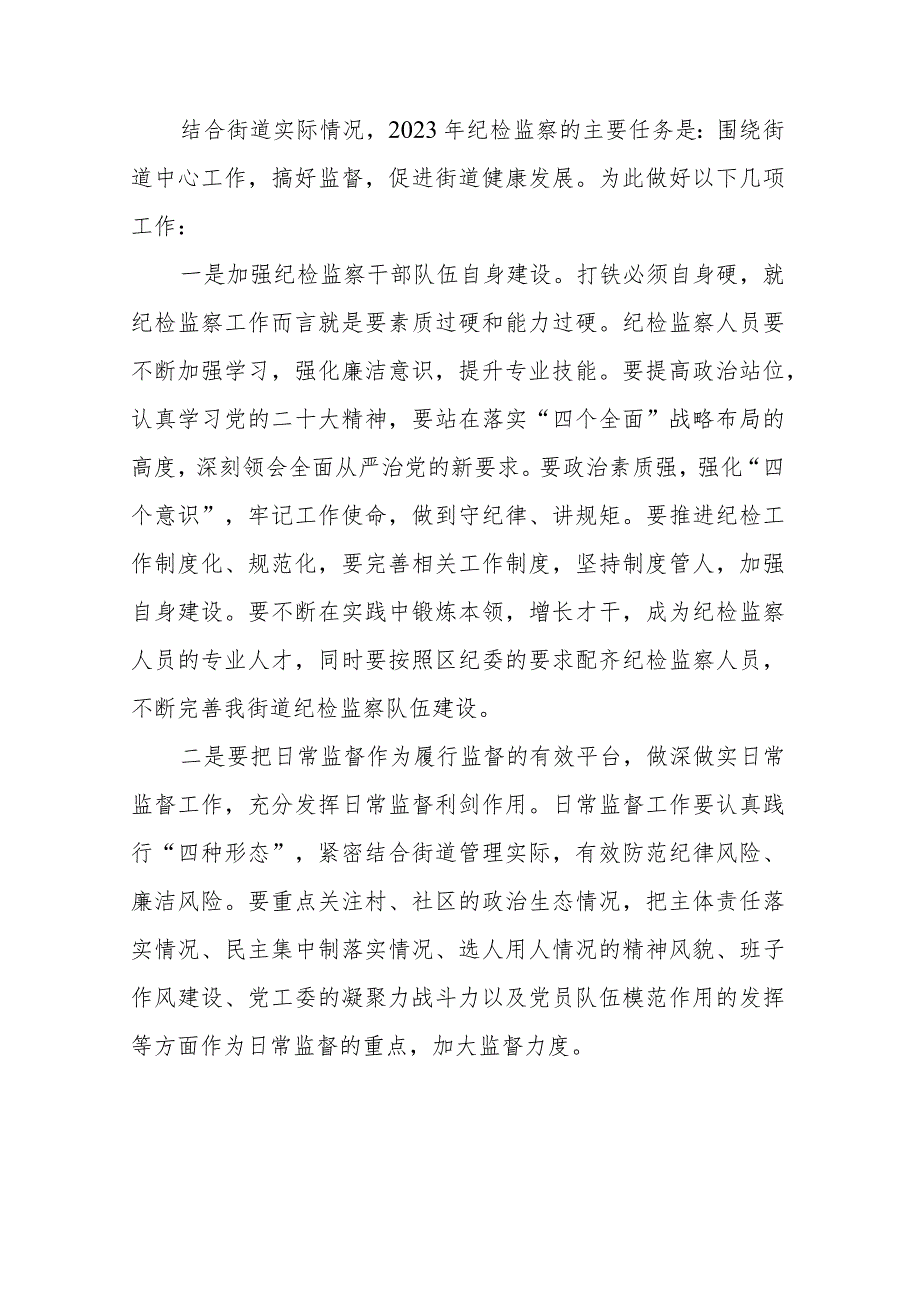 结合街道实际情况，2023 年纪检监察的主要任务是：围绕街
道中心工作，搞好监督，促进街道健康发展。为此做好以下几项
工作：
一是加强纪检监察干部队伍自身建设。打铁必须自身硬，就
纪检监察工作而言就是要素质过硬和能力过硬。纪检监察人员要
不断加强学习，强化廉洁意识，提升专业技能。要提高政治站位，
认真学习党的二十大精神，要站在落实“四个全面”战略布局的
高度，深刻领会全面从严治党的新要求。要政治素质强，强化“四
个意识”，牢记工作使命，做到守纪律、讲规矩。要推进纪检工
作制度化、规范化，要完善相关工作制度，坚持制度管人，加强
自身建设。要不断在实践中锻炼本领，增长才干，成为纪检监察
人员的专业人才，同时要按照区纪委的要求配齐纪检监察人员，
不断完善我街道纪检监察队伍建设。
二是要把日常监督作为履行监督的有效平台，做深做实日常
监督工作，充分发挥日常监督利剑作用。日常监督工作要认真践
行“四种形态”，紧密结合街道管理实际，有效防范纪律风险、
廉洁风险。要重点关注村、社区的政治生态情况，把主体责任落
实情况、民主集中制落实情况、选人用人情况的精神风貌、班子
作风建设、党工委的凝聚力战斗力以及党员队伍模范作用的发挥
等方面作为日常监督的重点，加大监督力度。